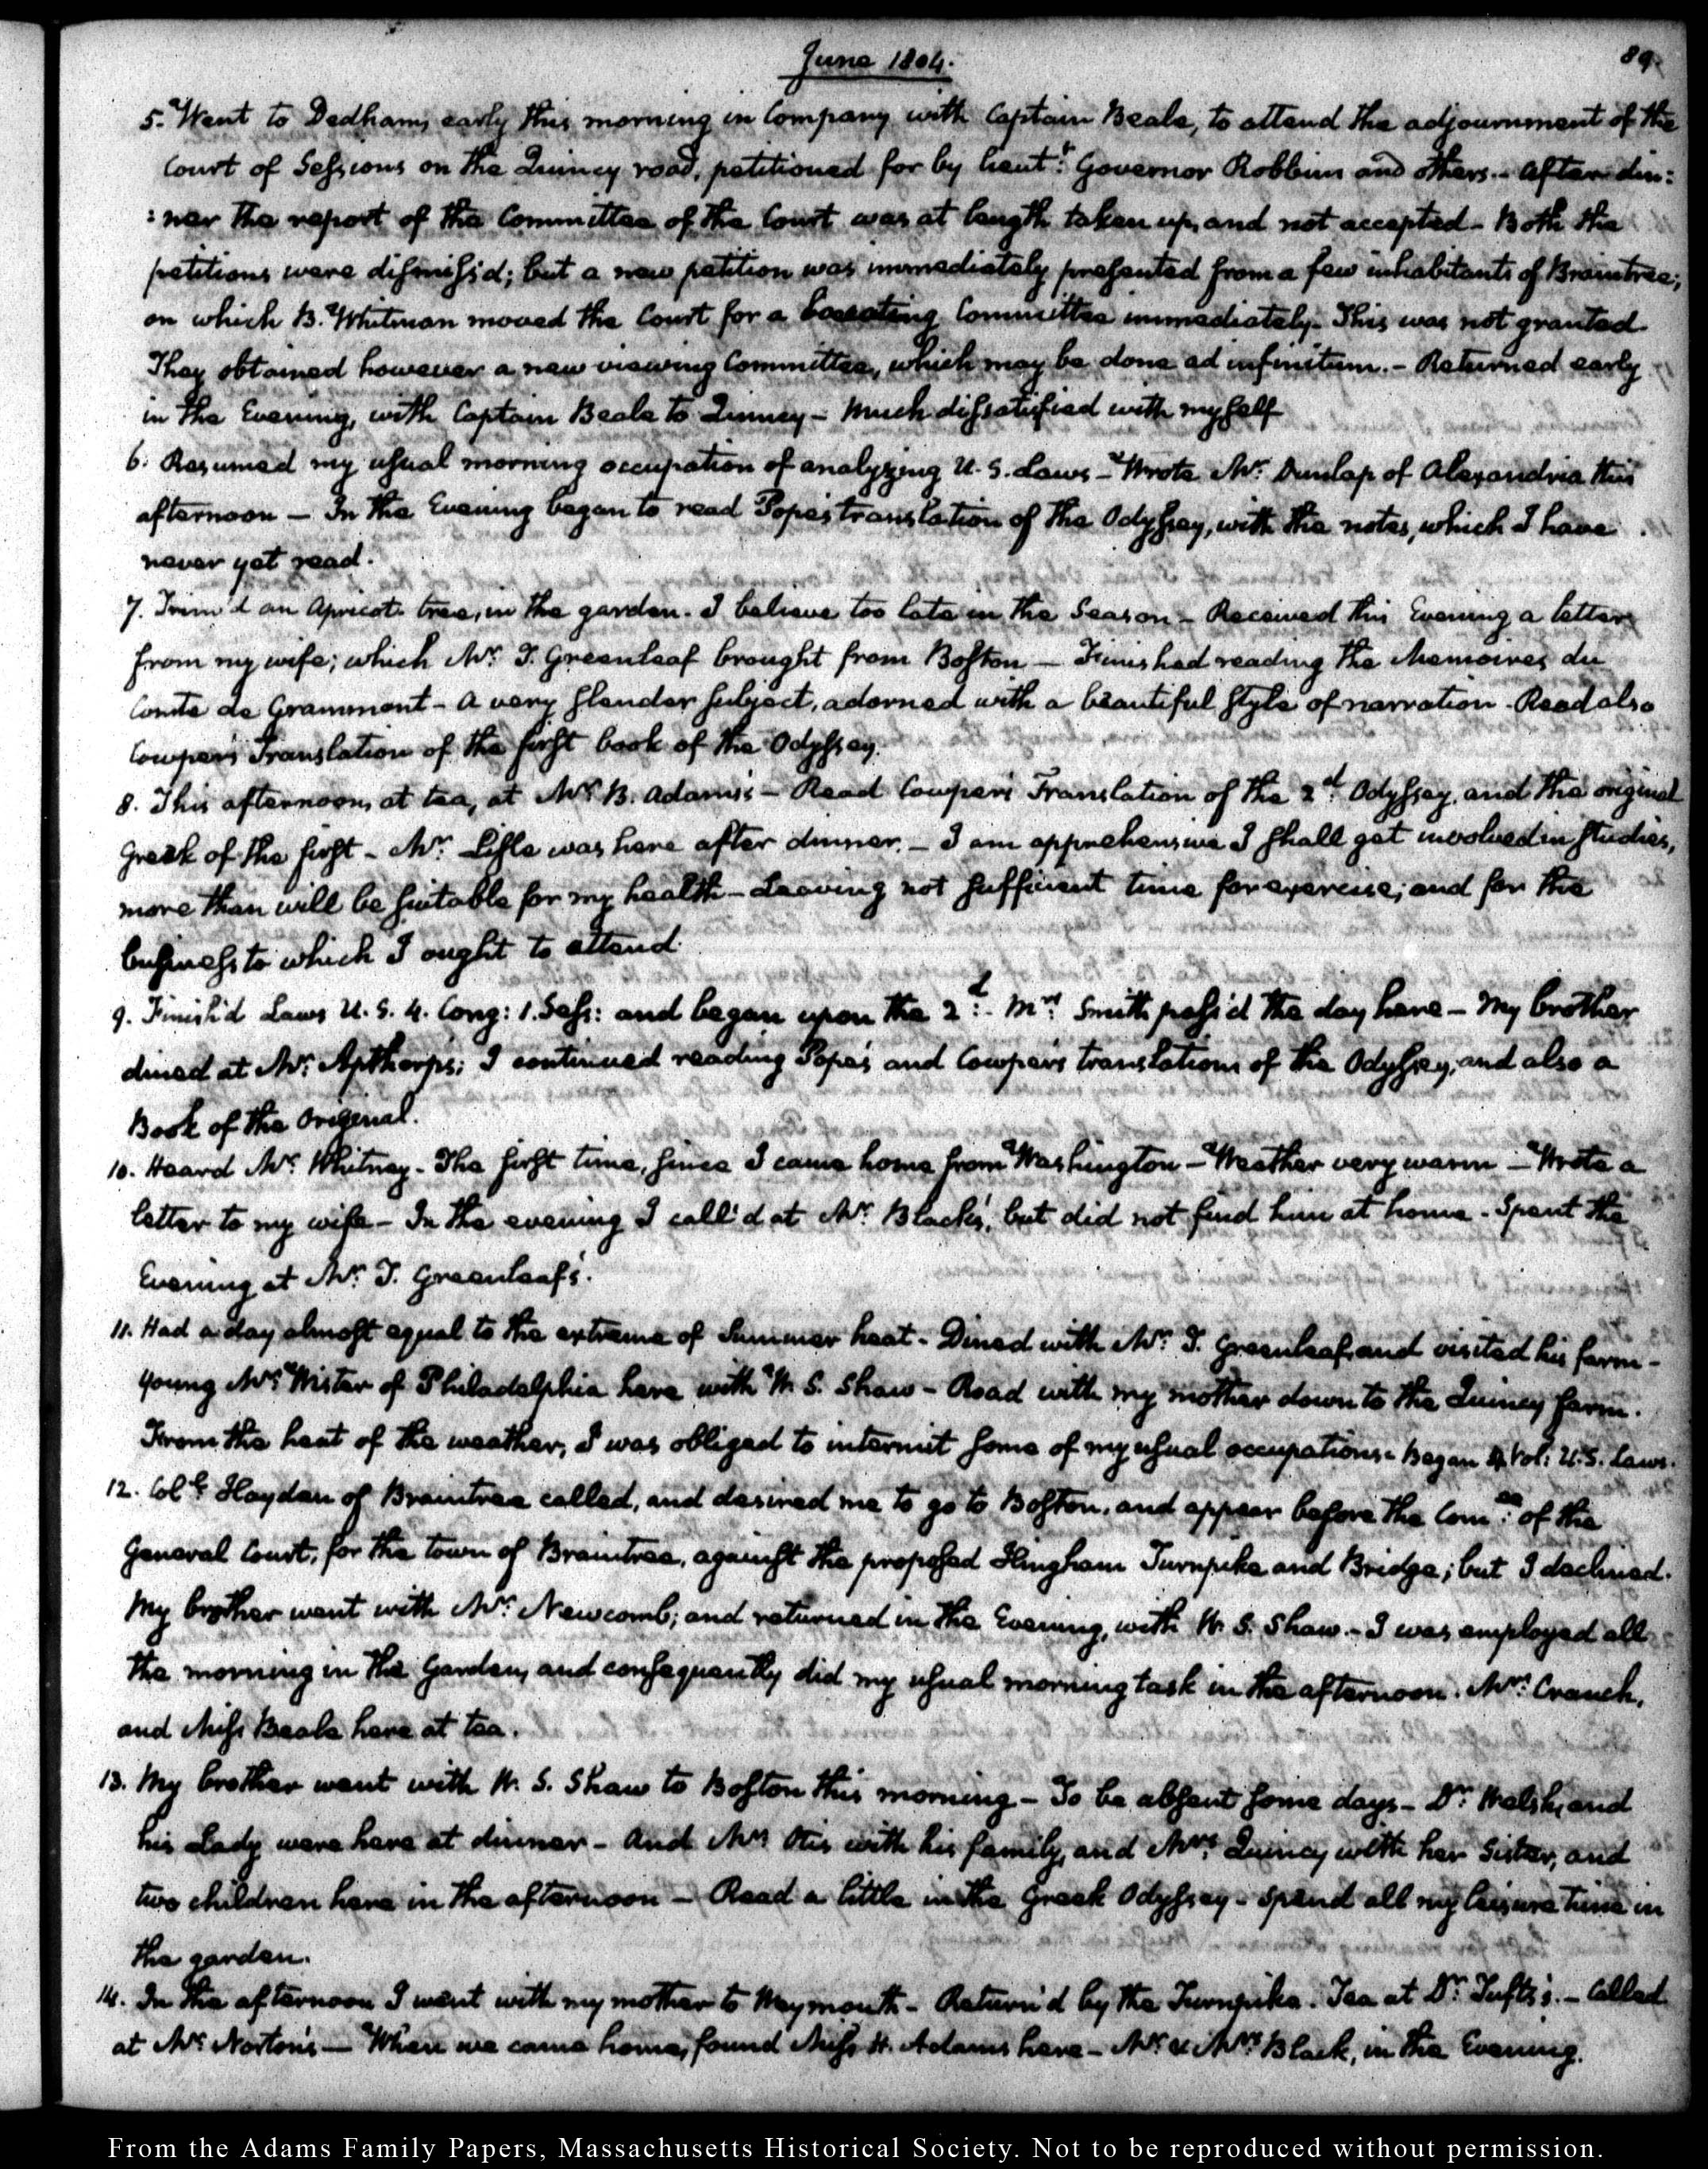 June 1804.
89.
5. Went to Dedham, early this morning in Company with Captain Beale, to attend the adjournment of the
Court of Sessions on the Quincy road, petitioned for by Lieut.t Governor Robbins and others.- After din:
:ner the report of the Committee of the Court was at length taken up, and not accepted - Both the
petitions were dismiss'd; but a new petition was immediately presented from a few inhabitants of Braintree;
on which B. Whitman moved the Court for a locating Committee immediately. This was not granted.
They obtained however a new viewing Committee, which may be done ad infinitum. - Returned early
in the Evening, with Captain Beale to Quincy - Much dissatisfied with myself
6. Resumed my usual morning occupation of analyzing U. S. Laws - Wrote Mr. Dunlap of Alexandria this
afternoon - In the Evening began to read Pope's translation of the Odyssey, with the notes, which I have
never yet read.
7. Trim'd an Apricot tree, in the garden. I believe too late in the Season - Received this Evening a letter
from my wife; which Mr. T. Greenleaf brought from Boston - Finished reading the Memoires du
Comte de Grammont - A very slender subject, adorned with a beautiful style of narration. Read also
Cowper's Translation of the first book of the Odyssey.
8. This afternoon, at tea, at Mrs. B. Adams's - Read Cowper's Translation of the 2.d Odyssey, and the original
Greek of the first - Mr. Lisle was here after dinner. - I am apprehensive I shall get involved in studies,
more than will be suitable for my health - Leaving not sufficient time for exercise; and for the
business to which I ought to attend.
9. Finish'd Laws U. S. 4. Cong: 1. Sess: and began upon the 2.d - Mrs. Smith pass'd the day here - My brother
dined at Mr. Apthorp's; I continued reading Pope's and Cowper's translations of the Odyssey, and also a
Book of the Original.
10. Heard Mr. Whitney. The first time, since I came home from Washington - Weather very warm - Wrote a
letter to my wife - In the evening I call'd at Mr. Black's, but did not find him at home. Spent the
Evening at Mr. T. Greenleaf's.
11. Had a day almost equal to the extreme of Summer heat - Dined with Mr. T. Greenleaf, and visited his farm -
Young Mr. Wister of Philadelphia here with W. S. Shaw - Road with my mother down to the Quincy farm.
From the heat of the weather, I was obliged to intermit some of my usual occupations. Began 4 Vol: U.S. Laws.
12. Col.l Hayden of Braintree called, and desired me to go to Boston, and appear before the Com.ee of the
General Court, for the town of Braintree, against the proposed Hingham Turnpike and Bridge; but I declined.
My brother went with Mr. Newcomb; and returned in the Evening, with W. S. Shaw. - I was employed all
the morning in the Garden, and consequently did my usual morning task in the afternoon. Mrs. Cranch,
and Miss Beale here at tea.
13. My brother went with W. S. Shaw to Boston this morning - To be absent some days - Dr. Welsh, and
his Lady were here at dinner - And Mr. Otis with his family, and Mrs. Quincy with her Sister, and
two children here in the afternoon - Read a little in the Greek Odyssey - Spend all my leisure time in
the garden.
14. In the afternoon I went with my mother to Weymouth - Return'd by the Turnpike. Tea at Dr. Tufts's. - Called
at Mr. Norton's - When we came home, found Miss H. Adams here - Mr. & Mrs. Black, in the Evening.
From the Adams Family Papers, Massachusetts Historical Society. Not to be reproduced without permission.